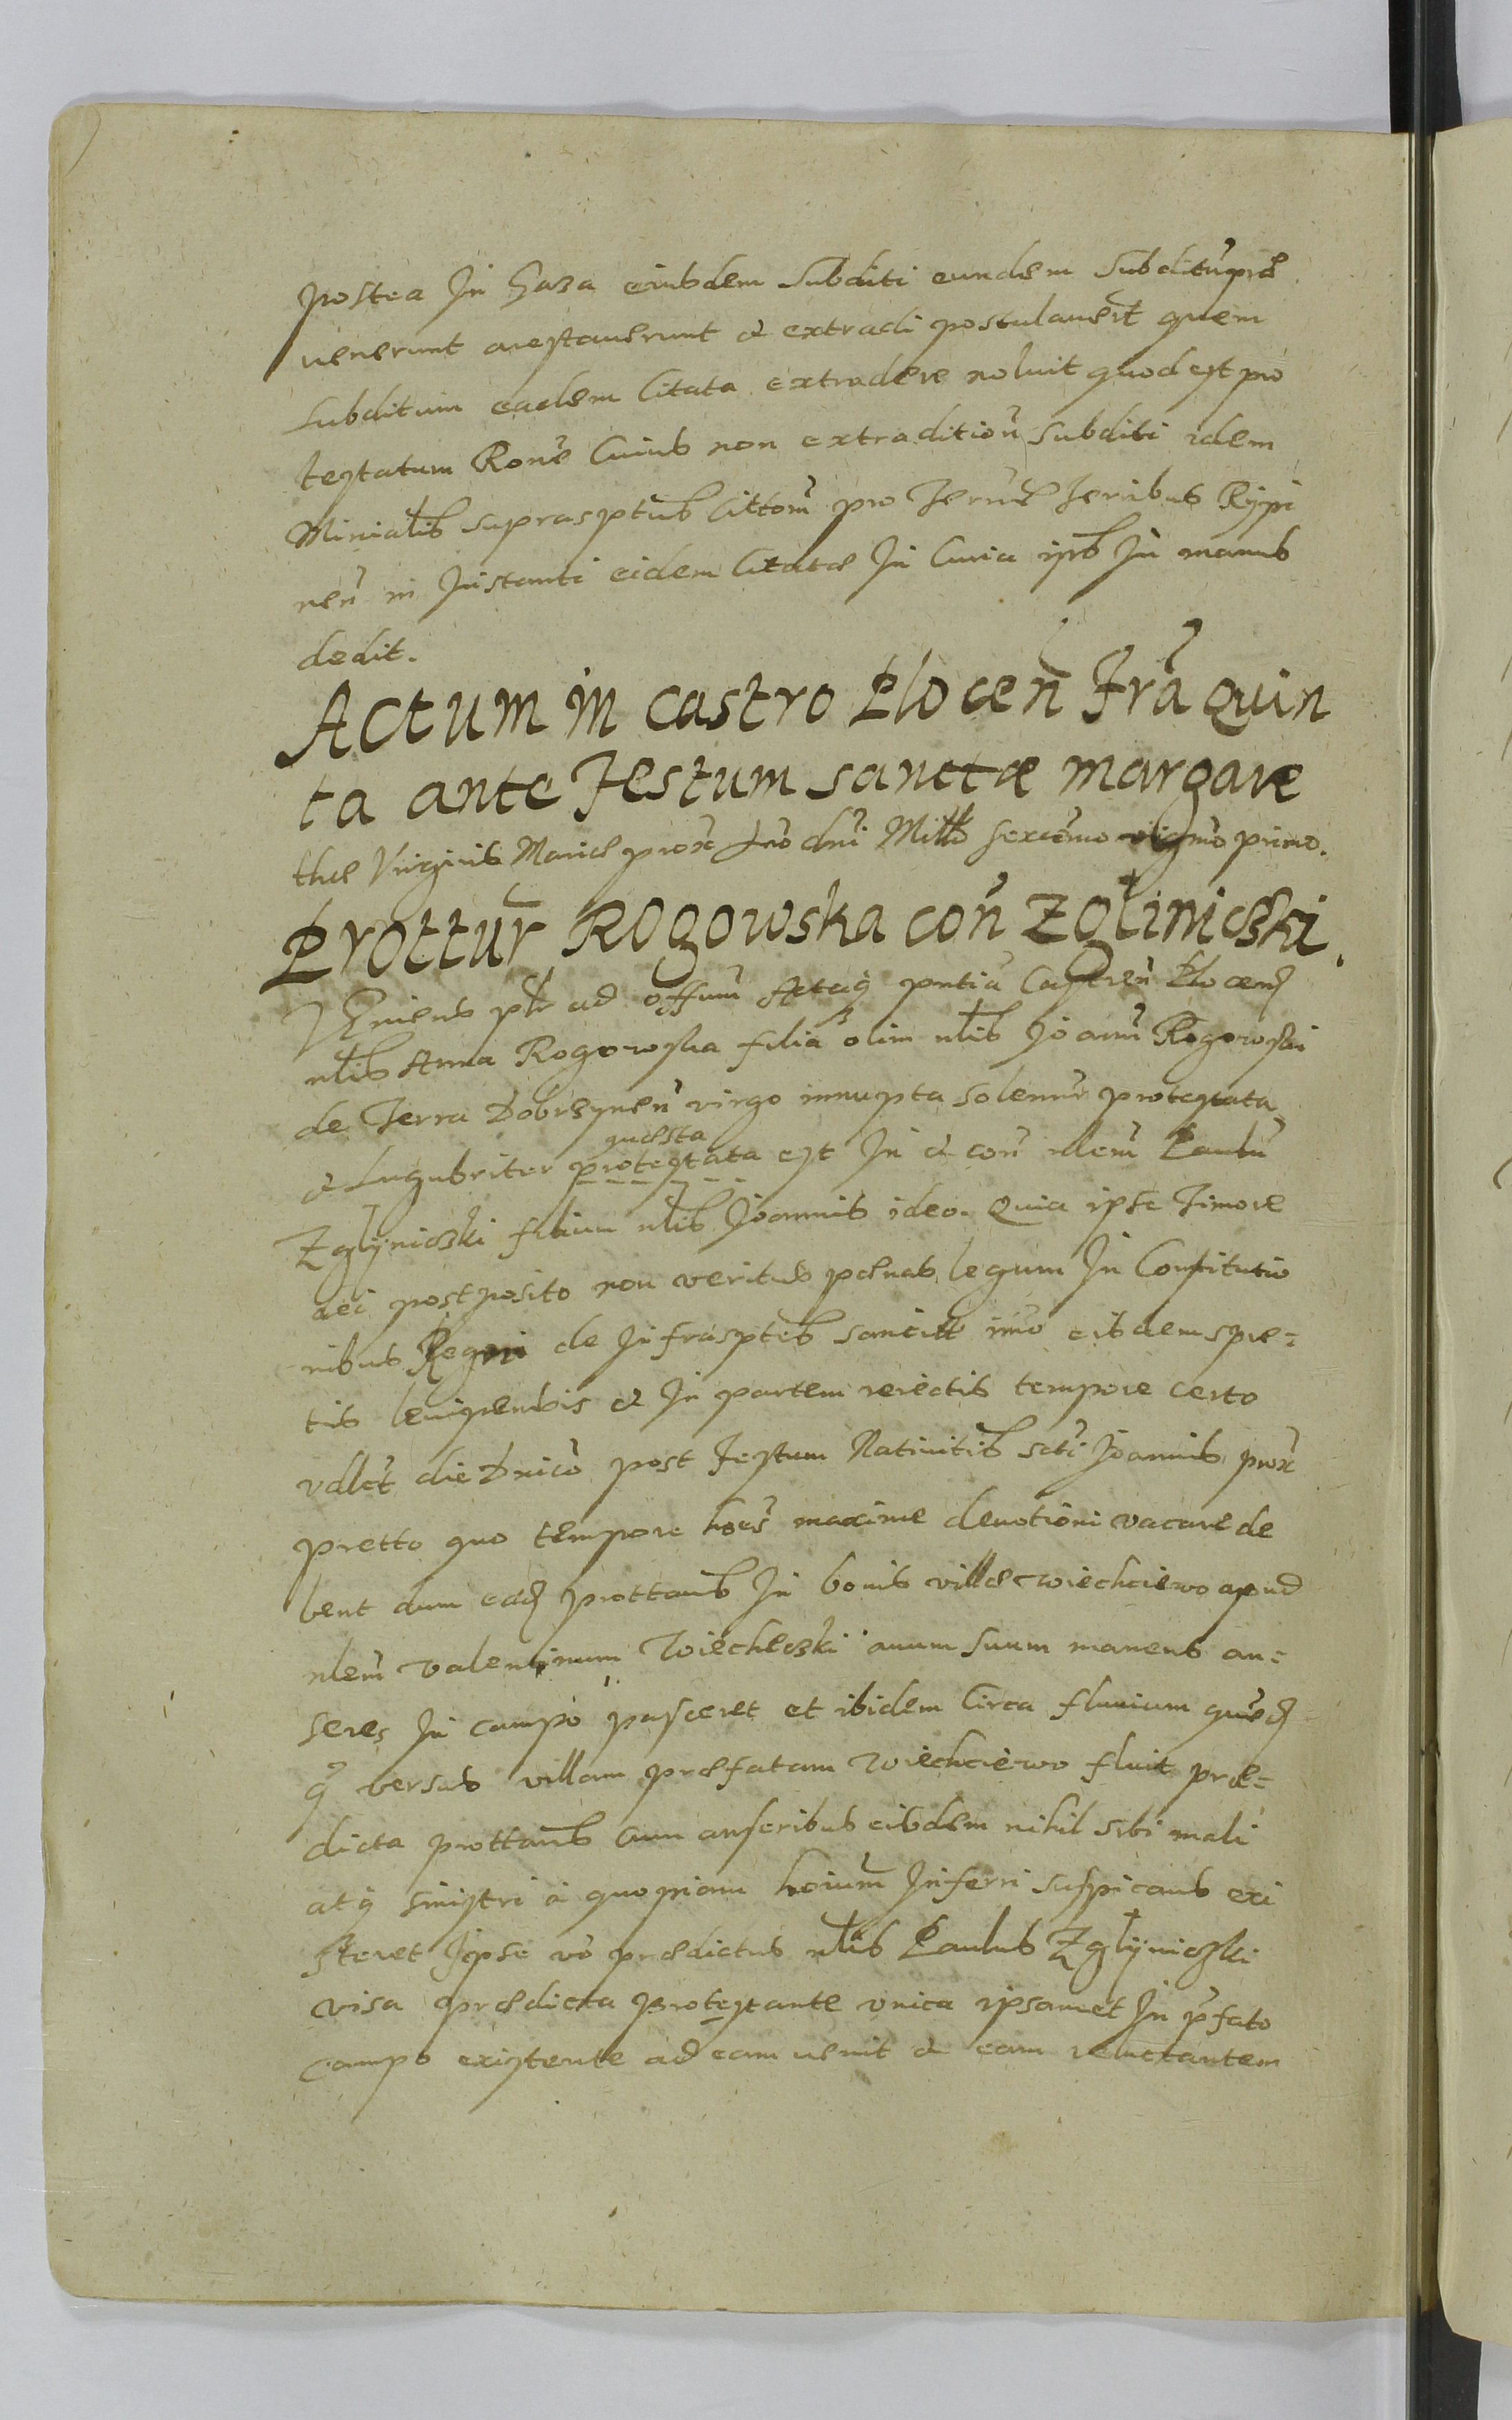 postea In Haza eiusdem Subditi eundem Subditũ præ
uenerunt arestauerunt & extradi postulauert̃ quem
subditum eadem Citata extradere noluit quod est pro
testatum Rone Cuius non extraditioñ subditi idem
Minialis suprasptus litt̃om pro Term̃ Feribus Rypi
neñ in Instanti eidem Citatæ In Curia ips̃ In manus
dedit.
Actum in castro Ploceñ Fria Quin
ta ante Festum sanctæ margare
thæ Virginis Mariæ prox̃ Año dni Millo sexcẽmo vigm̃o primo.
Prottur̃ Rogowska coñ Zgliniczki.
VEniens plr ad offum Actaq̃ pntia Castreñ Plocen̄
nlis Anna Rogowska filia olim nlis Joañni Rogowski
de Terra Dobrzyneñ virgo innupta solennr̃ protestata
& Lugubriter protestata est In & coñ nlem̃ Paulũ
quæsta
Zglyniczki filium nlis Joannis ideo. Quia ipse Timore
dei postposito non veritus pœnas legum In Constitutio
nibus Regni de Infrasptis sancitt imo eisdem spre=
tis leuipensis & In partem reiectis tempore certo
vdlct̃ die Dnico post Festum Natiuitis scti Joannis prox̃
pretto quo tempore hoẽs maxime deuotioni vacare de
bent dum eadẽ prottans In bonis villæ Wiechciewo apud
nlem̃ Valentinum Wiecheczki auum suum manens an=
seres In campo pasceret et ibidem Circa fluuium quẽd
q̃ versus villam præfatam Wiechciewo fluit præ=
dicta prottans Cum anseribus eisdem nihil sibi mali
atq̃ sinistri à quopiam hoium̃ Inferri suspicans exi
steret Ipse vo prædictus nlis Paulus Zglyniczki
visa prædicta Protestante vnica ipsamet In p̃fato
campo existente ad eam uenit & eam reluctantem